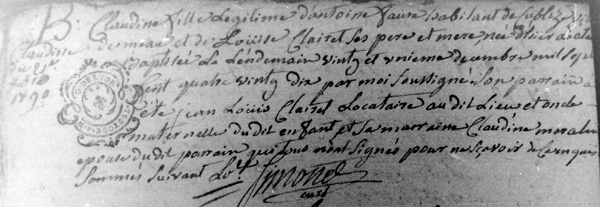 B. Claudine fille Legitime d'antoine Faure habitant de
Claudine
de meaa et de Louise Clairet Ses pere et mere, née d'hier a été
Baptisée Le Lendemain vingt et unieme decembre mil sept
1790
Cent quatre vingt dix par moi soussigné, Son parrain a
été jean Louis Clairet Locataire au dit Lieu et oncle
maternelle dudit enfant et sa marraine Claudine
epouse dudit parrain qui tous n'ont signés pour ne sçavoir de ce enquis
Sommes suivant Lo.
Simonet
curé